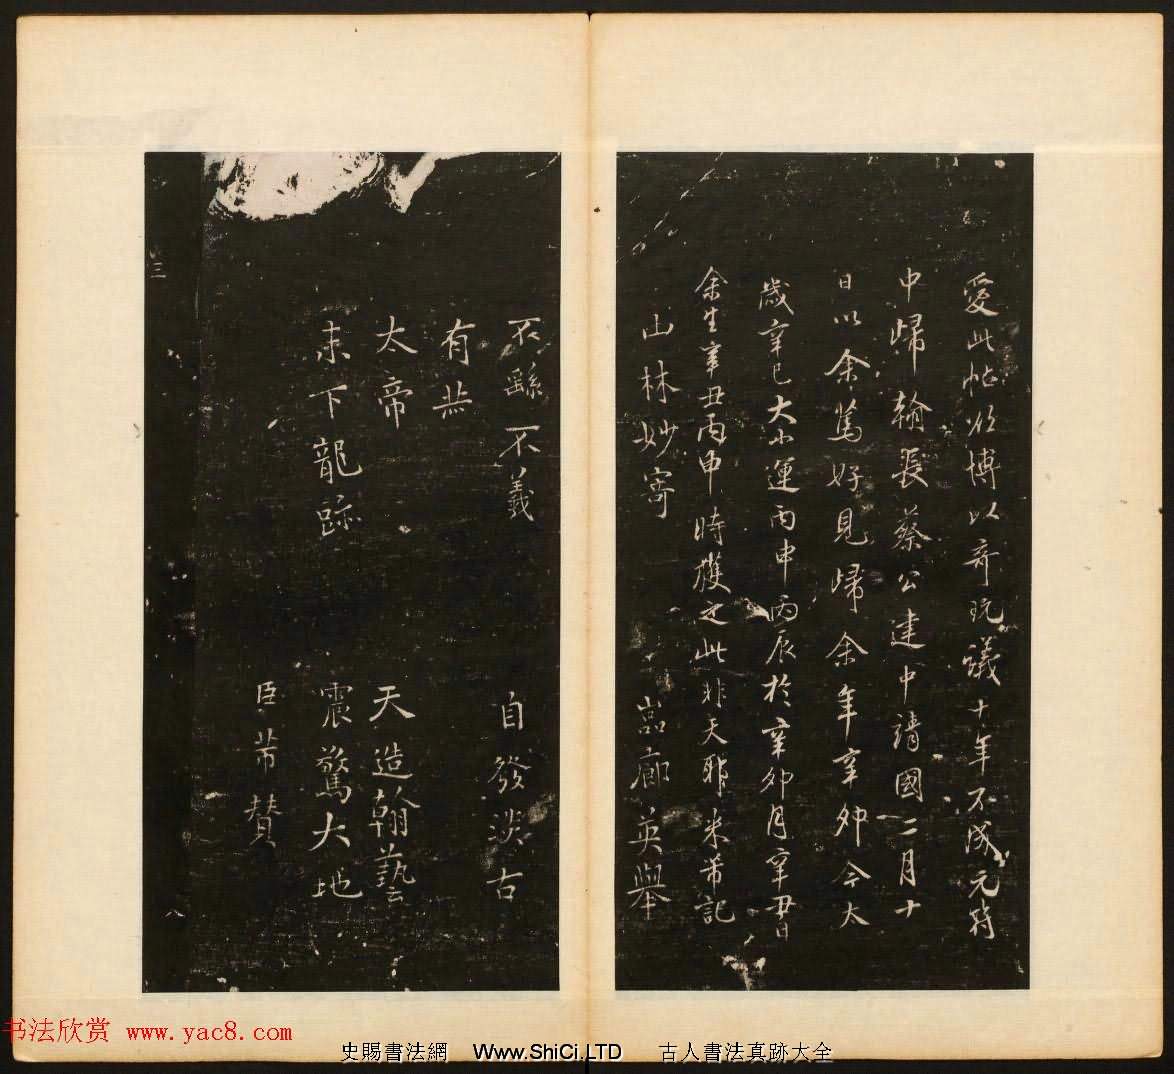 愛此帖欲博以奇玩議十年不成元符
中歸翰長蔡公建中靖國二月十
日以余篤好見歸余年辛卯今大
歲辛巳大小運丙申丙辰於辛卯月辛丑日
余生辛丑丙申時獲之此非天耶米芾記
山林妙寄 嵓廊英舉
不繇不義 自發淡古
有恭
太帝 天造翰藝
末下龍跡 震驚大地
臣芾贊
三
八
书法欣赏 www.yac8.com
史賜書法網 Www.ShiCi.LTD 古人書法真跡大全